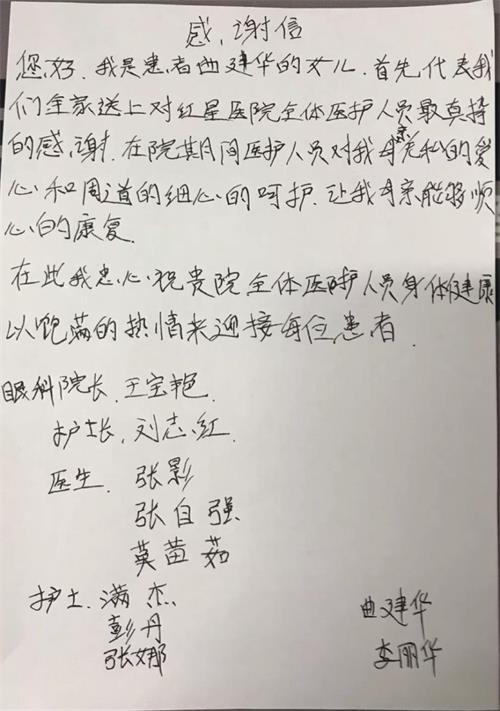 感谢信
您好.我是患者曲建华的女儿.首先代表我
们全家送上对红星医院全体医护人员最真挚
的感谢.在院期间医护人员对我母亲无私的爱
心和周道的细心的呵护.让我母亲能够顺
心的康复.
在此我忠心祝贵院全体医护人员身体健康
以饱满的热情来迎接每位患者.
眼科院长.王宝艳.
护士长.刘志红.
医生.张影
张自强
莫苗茹
护士.满杰
彭丹
张娜
曲建华
李丽华